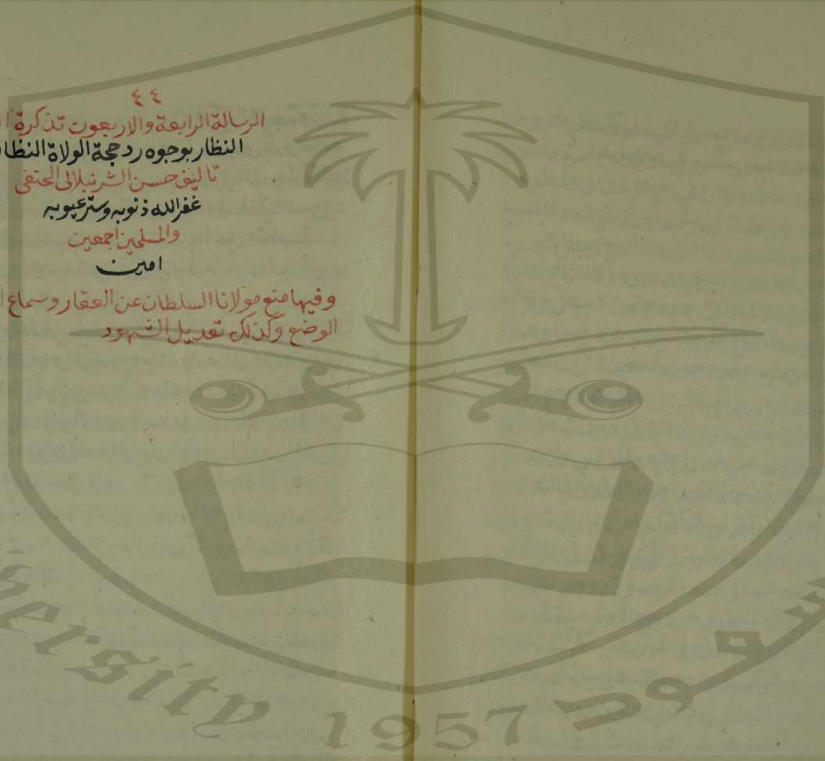 ٤٤
الرسالة الرابعة والاربعون تذكرة
النظار بوجوه رد حجة الولاة النظا
تاليف حسن الشرنبلالى الحنفى
غفر الله ذنوبه وستر عيوبه
والمسلمين اجمعين
امين
وفيها منع مولانا السلطان عن العقار وسماع
الوضع وكذلك تعديل الشهود
versity 1957 سعود